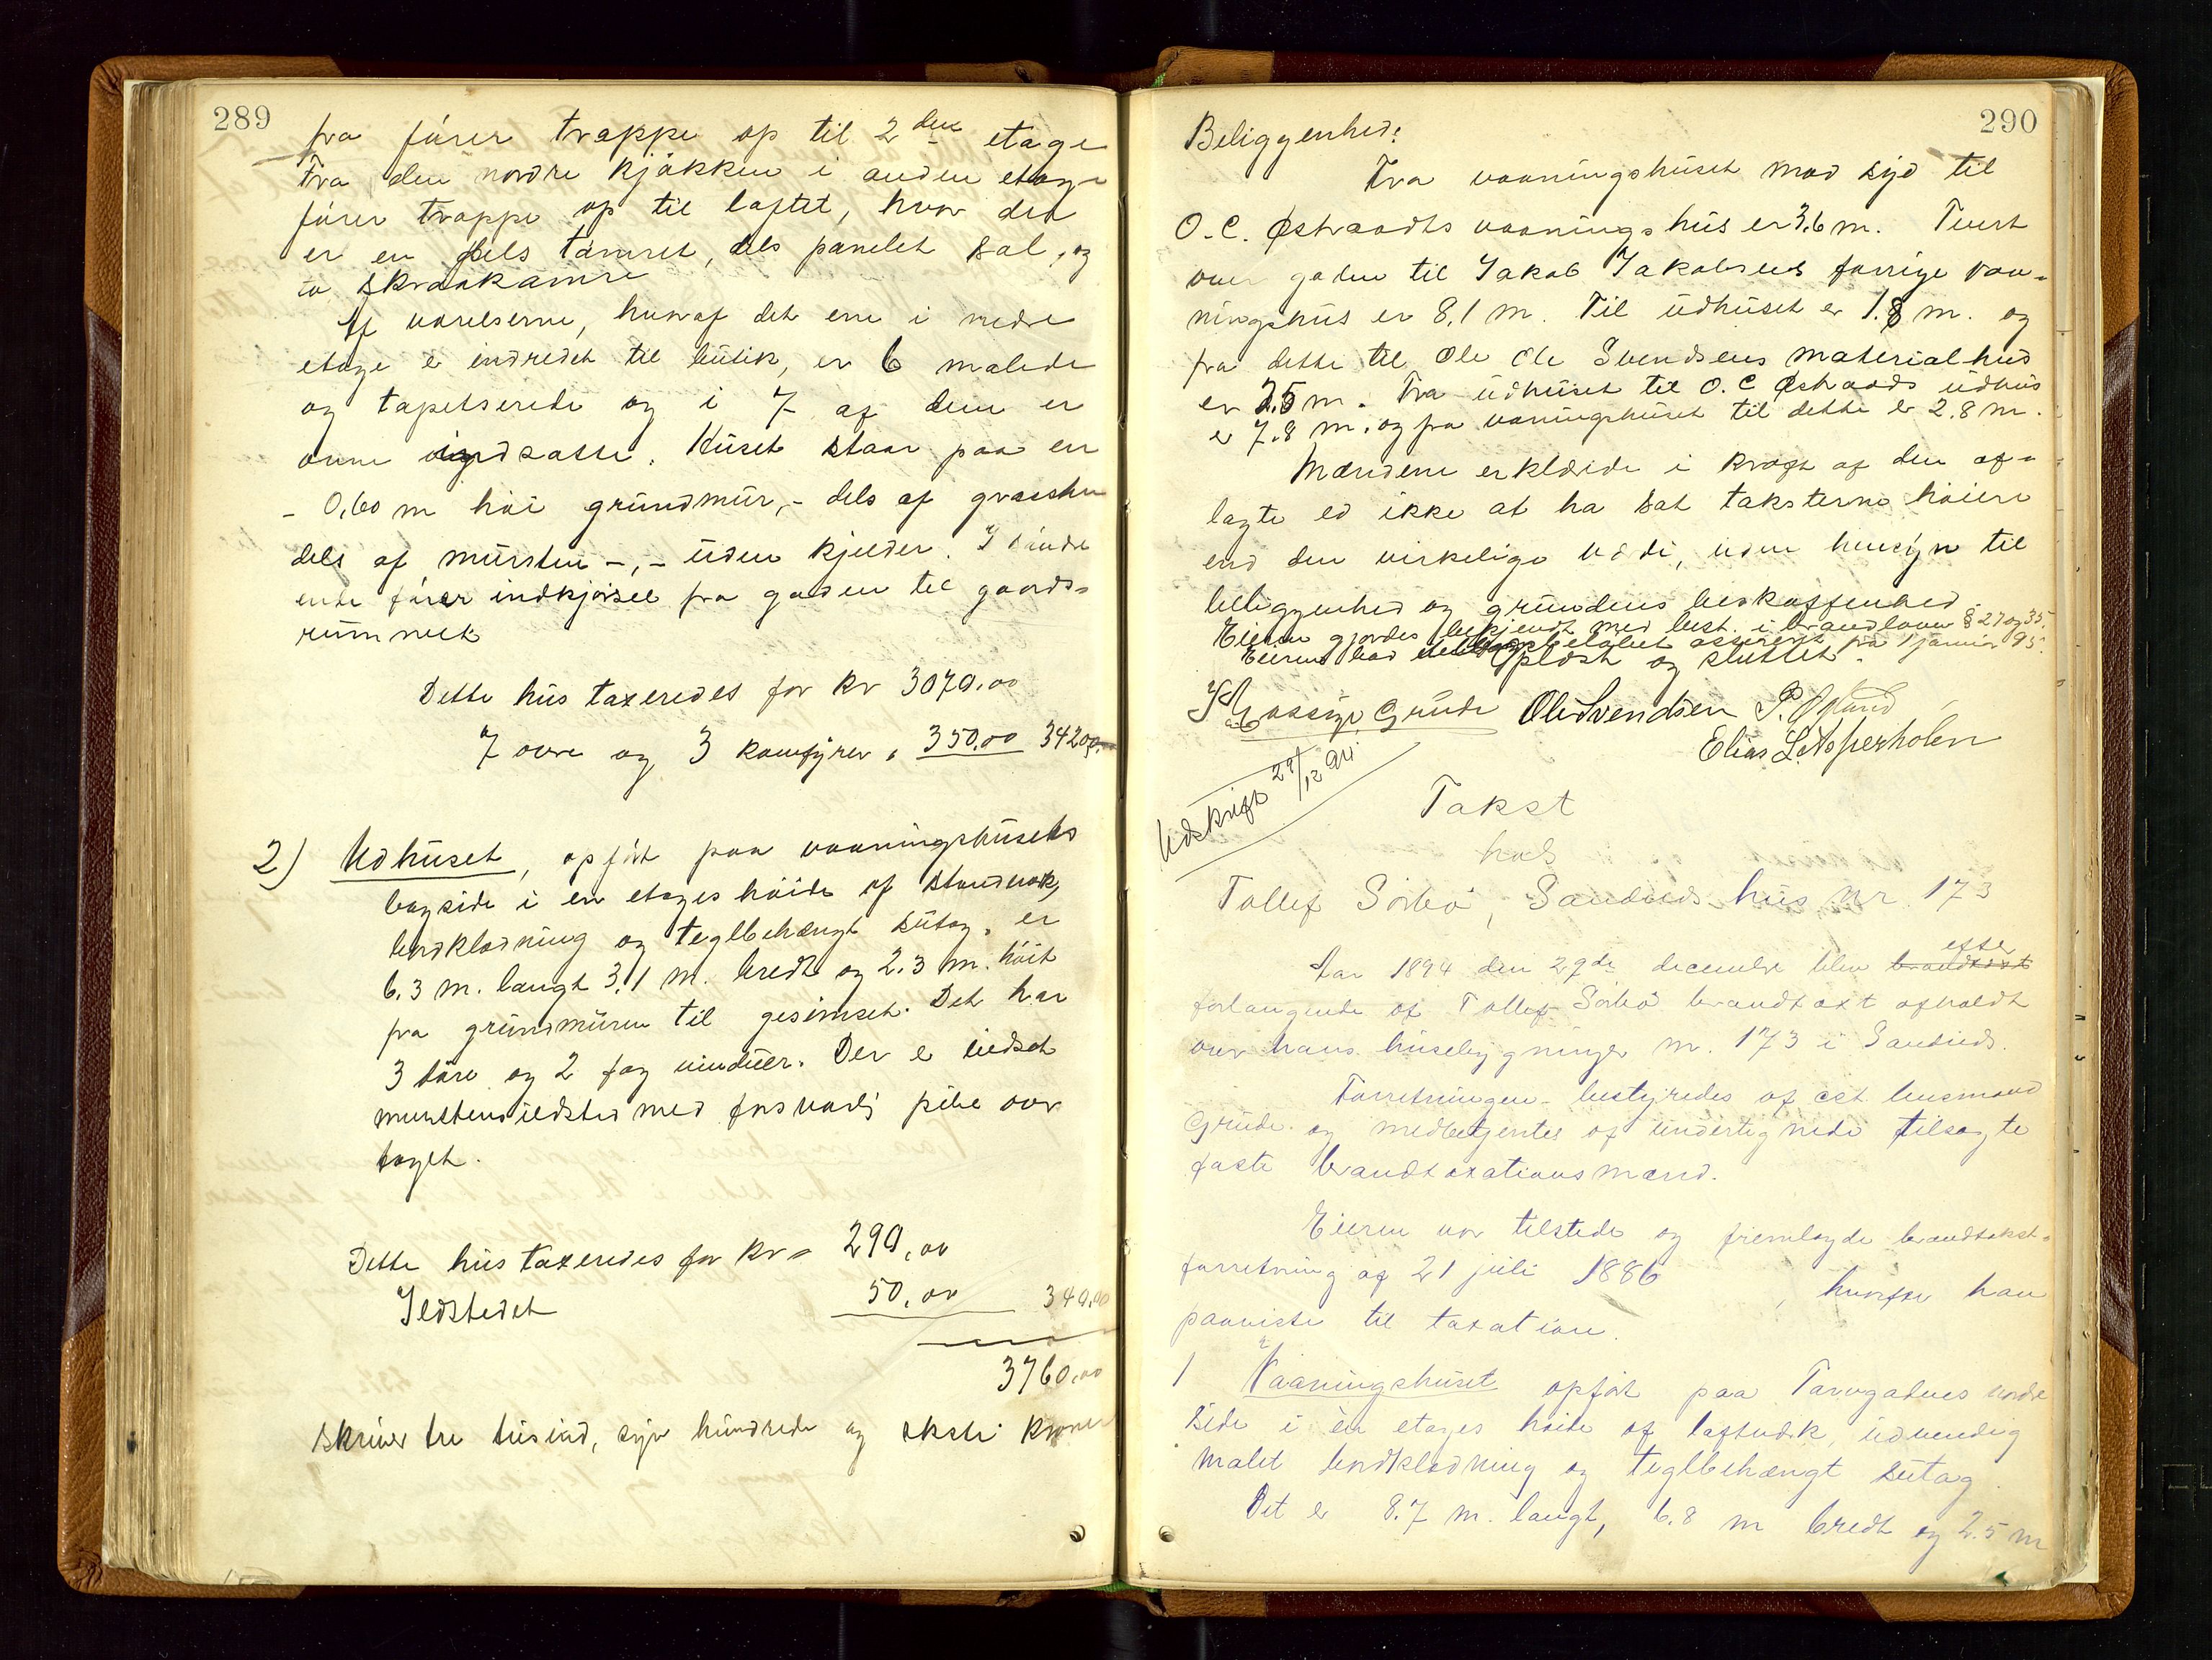 289
fra fører trappe op til 2den etage
Fra den nordre kjøkken i anden etage
fører trappe op til loftet, hvor det
er en dels tømret, dels panelet sal, og
to skraakamre
Af værelserne, hvoraf det ene i nedre
etage er indredet til butik, er 6 malede
og tapetserede og i 7 af dem er
ovne indsatte. Huset staar paa en
- 0,60 m høi grundmur, - dels af graasten
dels af mursten -, - uden kjelder. I søndre
ende fører indkjørsel fra gaden til gaards-
rummet.
Dette hus taxeredes for kr 3070.00
7 ovne og 3 komfyrer " 350.00 3420.
2) Udhuset, opført paa vaaningshusets
bagside i en etages høide af standverk,
bordklædning og teglbehængt sutag, er
6.3 m. langt 3.1 m. bredt og 2.3 m. høit
fra grundmuren til gesimset. Det har
3 døre og 2 fag vinduer. Der er indsat
murstensildsted med forsvarlig pibe over
taget.
Dette hus taxeredes for kr = 290,00
Ildstedet 50,00 340,00
3760,00
skriver tre tusind, syv hundrede og seksti kroner
290
Beliggenhed:
Fra vaaningshuset mod syd til
O. C. Østraadts vaaningshus er 3.6 m. Tvert
over gaden til Jakob Jakobsens forrige vaa-
ningshus er 8,1 m. Til udhuset er 1.8 m. og
fra dette til Ole Ole Svendsens materialhus
er 2.5 m. Fra udhuset til O. C Østraads udhus
er 7.8 m. og fra vaaningshuset til dette er 2.8 m.
Mændene erklærede i kraft af den af-
lagte ed ikke at ha sat taksterne høiere
end den virkelige værdi, uden hensyn til
beliggenhed og grundens beskaffenhed.
Eieren gjordes bekjendt med best. i brandloven § 27 og 35.
Eieren bad beløbet assureret fra 1 januar 95.
Oplæst og sluttet.
Grude Ole Svendsen P.
Elias L.
Udskrift 29/12 94.
Takst
hos
Tollef Sörbö, Sandnes hus nr. 173
Aar 1894 den 29de december blev brandtaxt efter
forlangende af Tollef Sörbö brandtaxt afholdt
over hans husebygninger nr. 173 i Sandnes.
Forretningen bestyredes af cst. lensmand
Grude og medbetjentes af undertegnede tilsagte
faste brandtaxationsmænd.
Eieren var tilstede og fremlagde brandtakst-
forretning af 21 juli 1886, hvorefter han
paaviste til taxation.
1 Vaaningshuset opført paa Torvgadens nordre
side i en etages høide af loftverk, udvendig
malet bordklædning og teglbehængt sutag
Det er 8.7 m. langt, 6.8 m bredt og 2.5 m